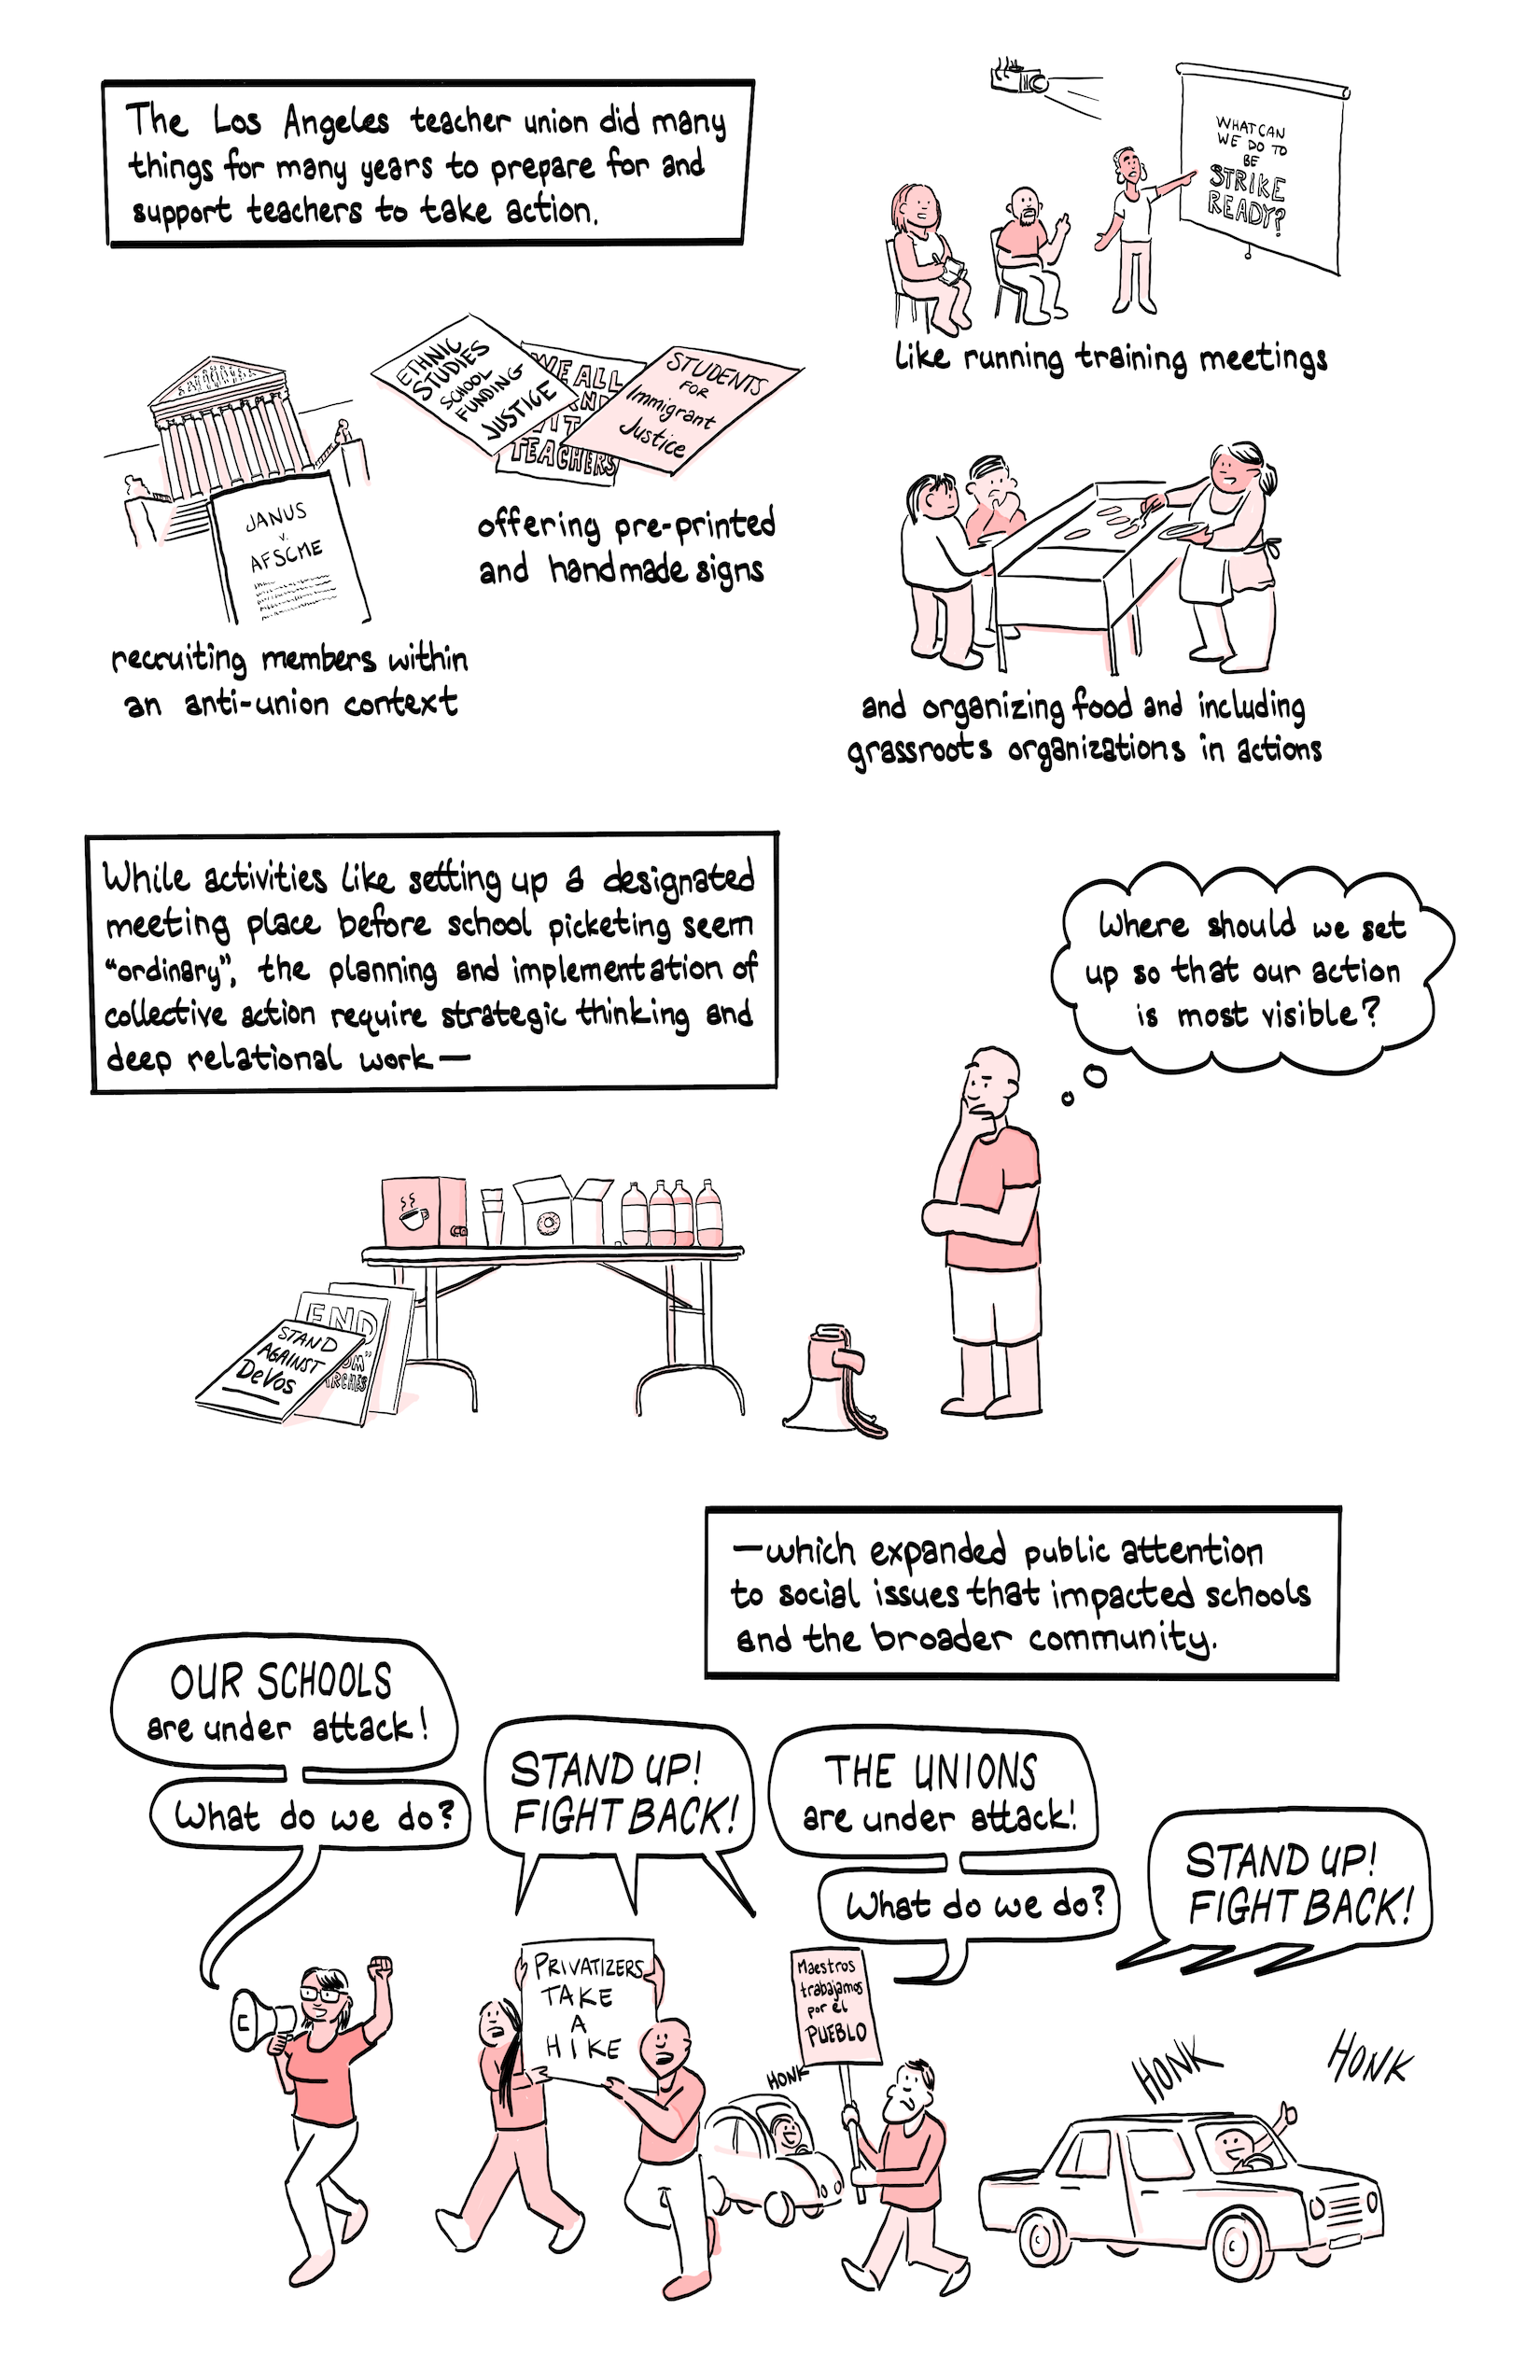 The Los Angeles teacher union did many
things for many years to prepare for and
support teachers to take action.
WHAT CAN
WE DO TO
BE
STRIKE
READY?
like running training meetings
ETHNIC
STUDIES
SCHOOL
FUNDING
JUSTICE
WE ALL
TEACHERS
STUDENTS
FOR
Immigrant
Justice
offering pre-printed
and handmade signs
JANUS
v.
AFSCME
recruiting members within
an anti-union context
and organizing food and including
grassroots organizations in actions
While activities like setting up a designated
meeting place before school picketing seem
"ordinary", the planning and implementation of
collective action require strategic thinking and
deep relational work—
Where should we set
up so that our action
is most visible?
END
STAND
AGAINST
DeVos
—which expanded public attention
to social issues that impacted schools
and the broader community.
OUR SCHOOLS
are under attack!
What do we do?
STAND UP!
FIGHT BACK!
THE UNIONS
are under attack!
What do we do?
STAND UP!
FIGHT BACK!
PRIVATIZERS
TAKE
A
HIKE
Maestros
trabajamos
por el
PUEBLO
HONK
HONK
HONK